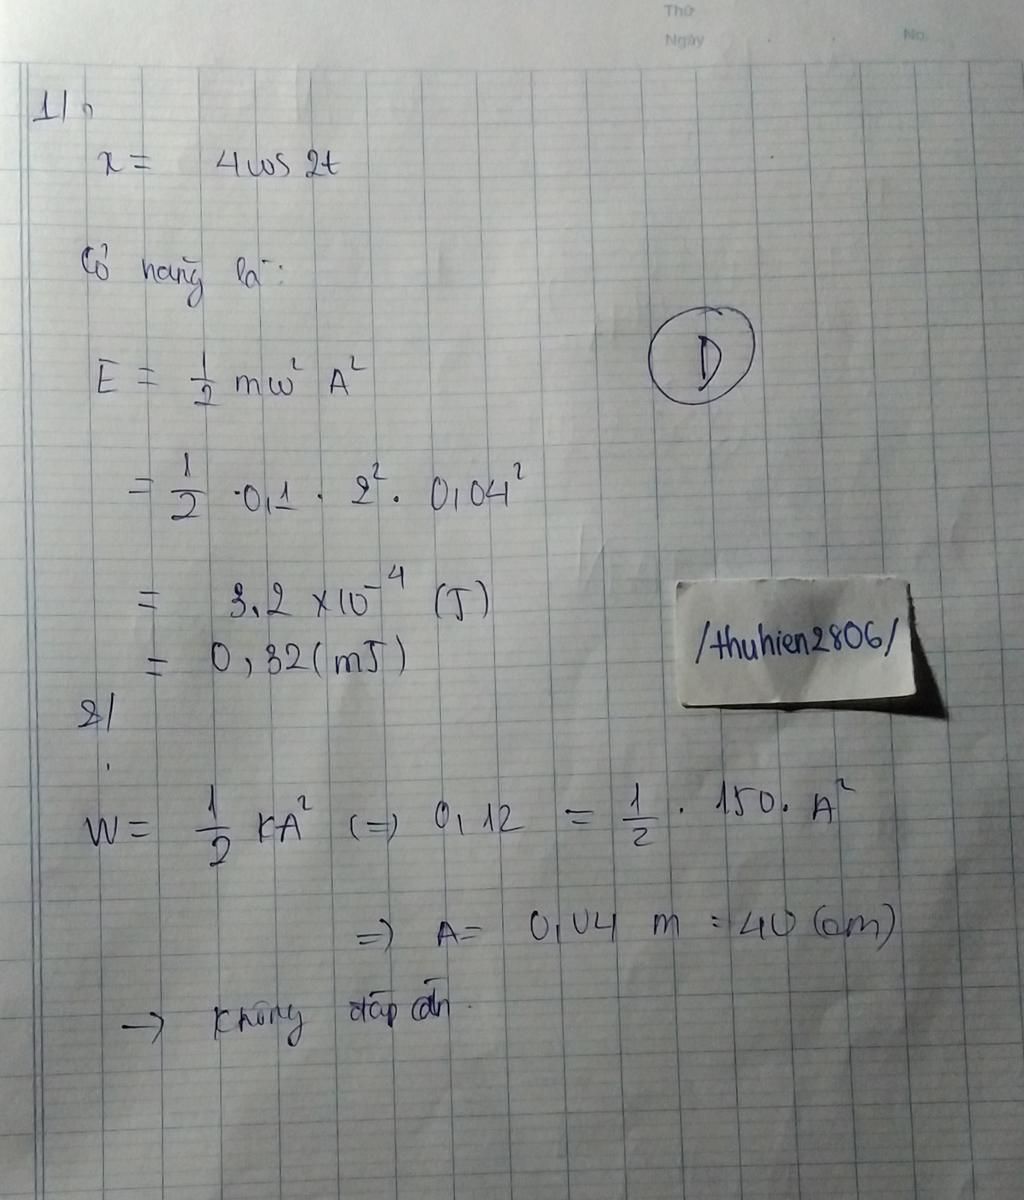 Thứ
Ngày No.
1/
x = 4cos 2t
Cơ năng là:
E = 1/2 mω² A²
D
= 1/2 . 0,1 . 2² . 0,04²
= 3.2 x10⁻⁴ (J)
= 0,32(mJ)
/thuhien2806/
2/
W = 1/2 KA² (=) 0,12 = 1/2 . 150. A²
=) A = 0,04 m = 40 (cm)
→ Không đáp án.